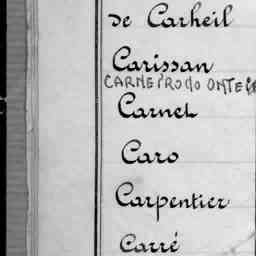 de Carheil
Carissan
CARNEIRO DO ONTE
Carnet
Caro
Carpentier
Carré